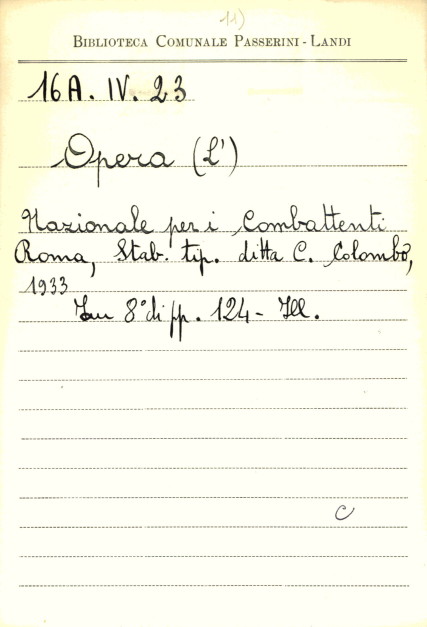 11)
BIBLIOTECA COMUNALE PASSERINI - LANDI
16 A. IV. 23
Opera (L')
Nazionale per i Combattenti
Roma, Stab. tip. ditta C. Colombo,
1933
In 8° di pp. 124 - Ill.
C